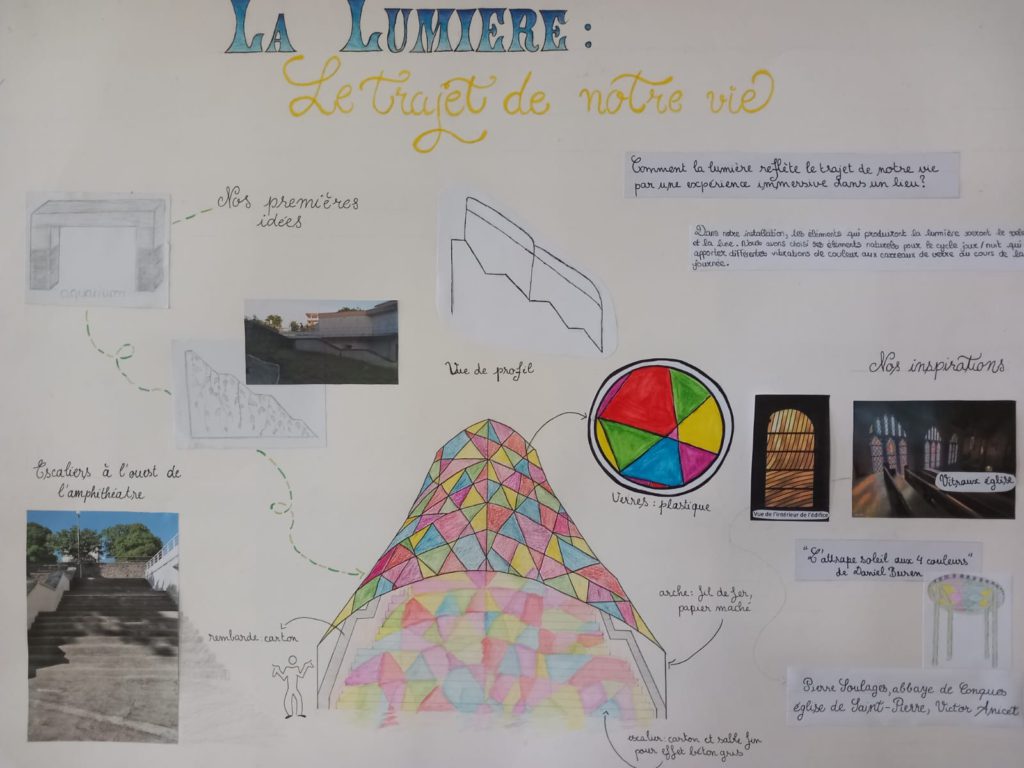 LA LUMIERE :
Le trajet de notre vie
Comment la lumière reflète le trajet de notre vie
par une expérience immersive dans un lieu?
Nos premières
idées
Dans notre installation, les éléments qui produiront la lumière seront le
et la lune. Nous avons choisi ses éléments naturels pour le cycle jour/nuit qui
apporter différentes vibrations de couleur aux carreaux de verre au cours de la
journée.
aquarium
Vue de profil
Nos inspirations
Escaliers à l'ouest de
l'amphithéatre
Vitraux église
Verres : plastique
Vue de l'intérieur de l'édifice
"L'attrape soleil aux 4 couleurs"
de Daniel Buren
arche: fil de fer,
papier maché
rembarde: carton
Pierre Soulages, abbaye de Conques
église de Saint-Pierre, Victor Anicet
escalier: carton et sable fin
pour effet béton gris